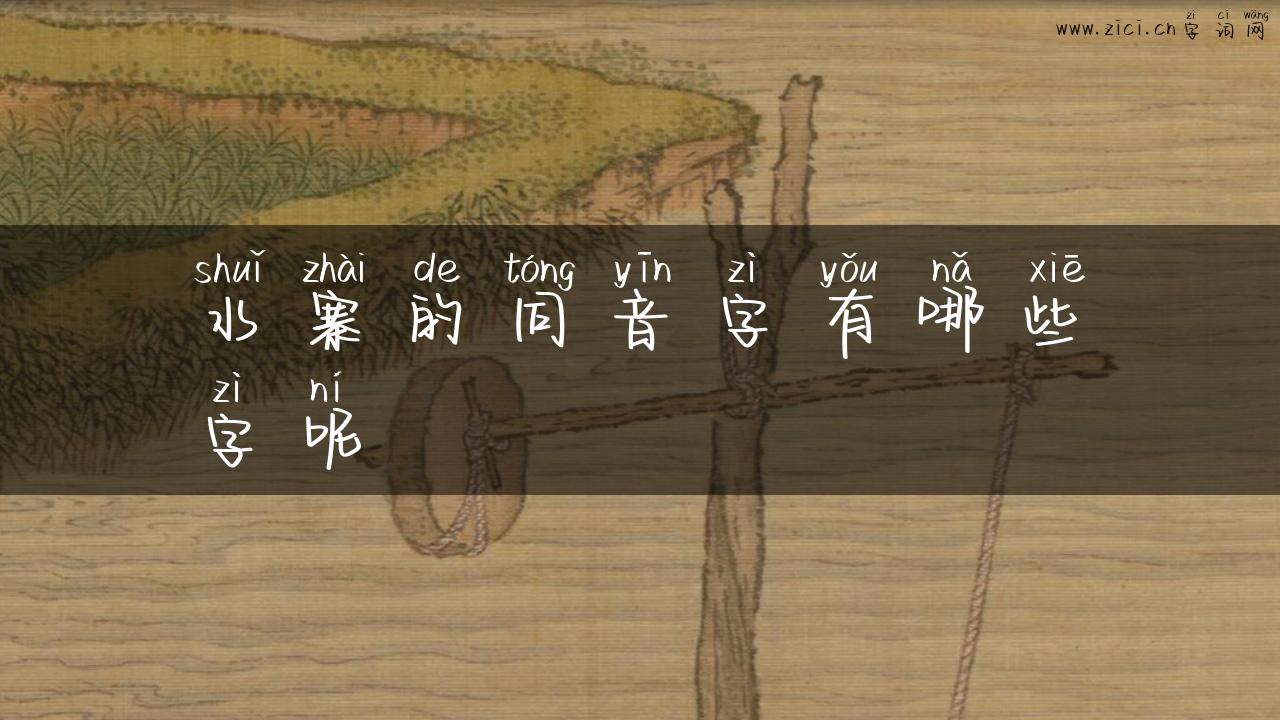 zì cí wǎng
www.zici.cn 字词网
shuǐ zhài de tóng yīn zì yǒu nǎ xiē
水寨的同音字有哪些
zì ní
字呢